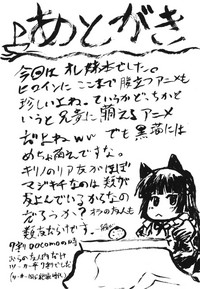 あとがき
今回はオレ妹でした。
ヒロインにここまで腹立つアニメも
珍しいよね。ていうかどっちかと
いうと兄貴に萌えるアニメ
だよねww でも黒猫には
めちゃ萌えですな。
キリノのリア友がほぼ
マジキチなのは類が
友よんでいるからなの
だろうか? オラの友人も
類友だけです。
7割りdocomoの時
おらの友人内だけ